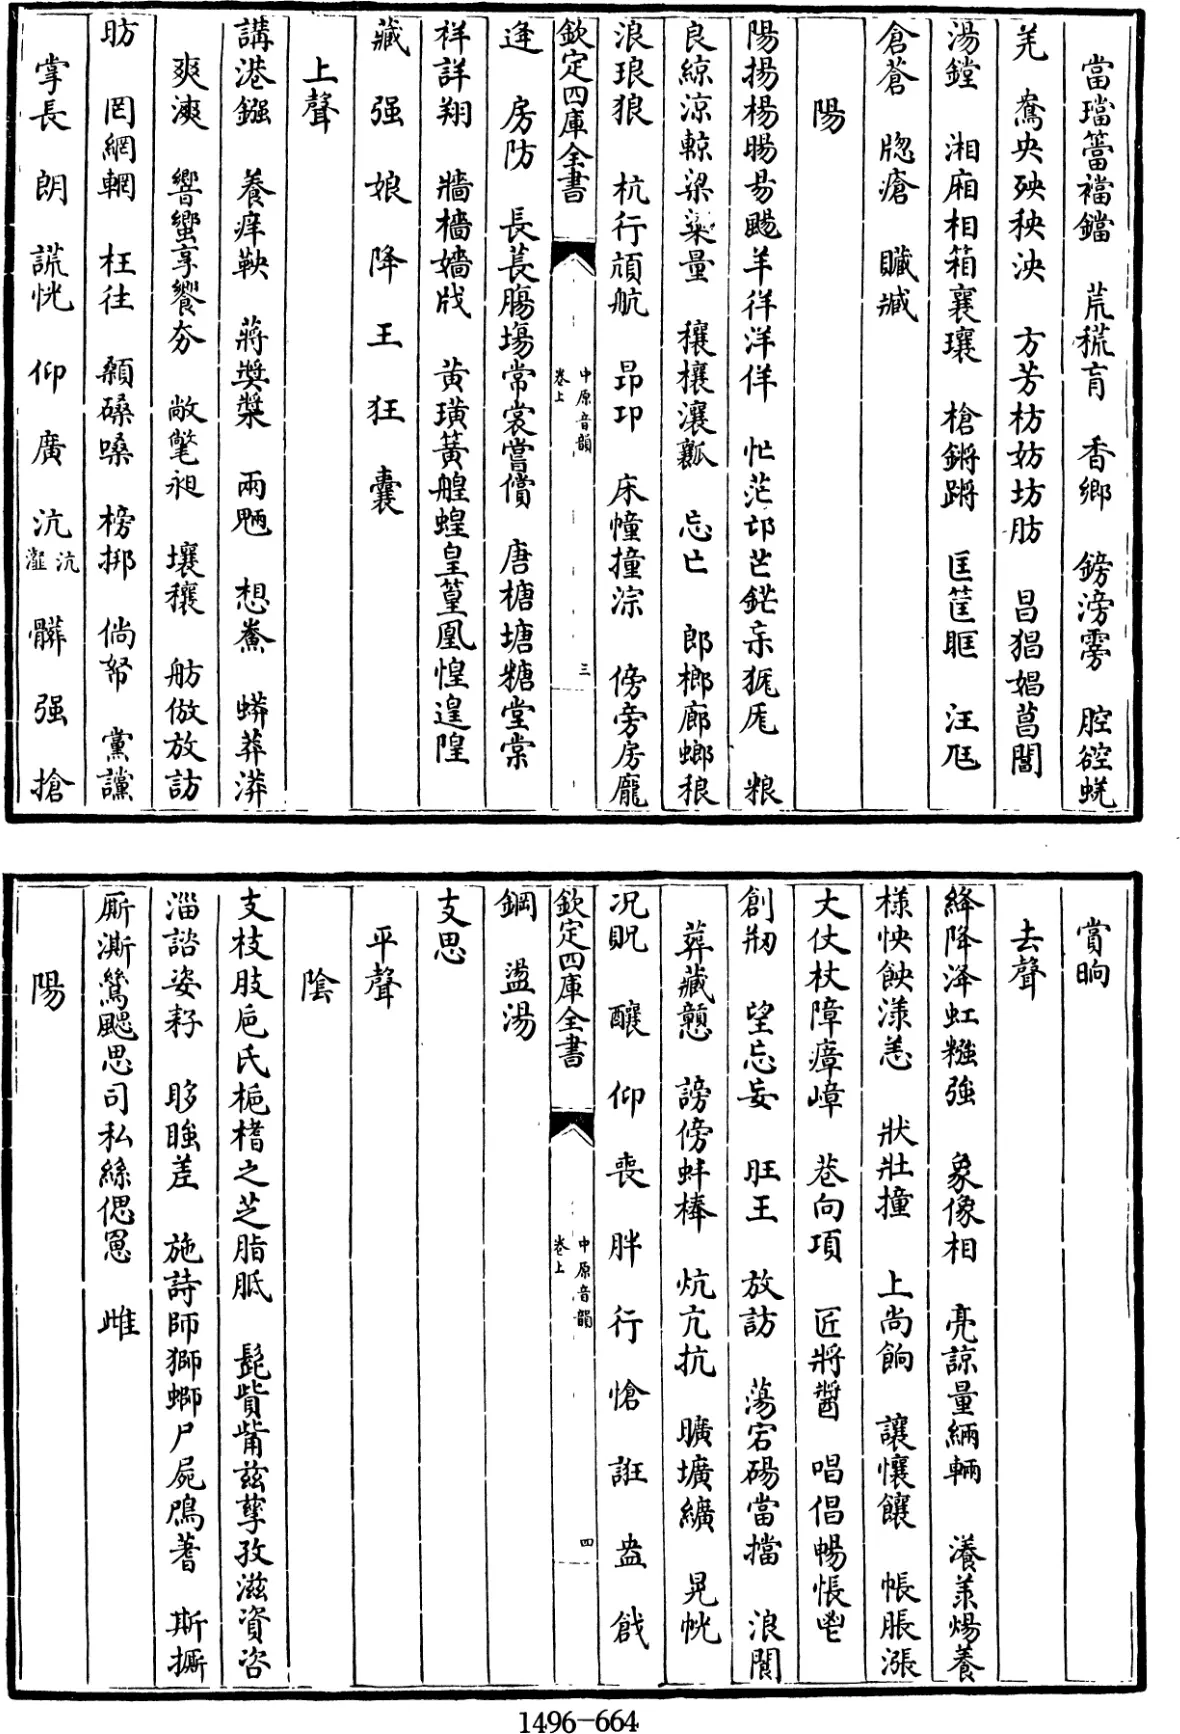 當璫簹襠鐺　荒𥹥肓　香鄉　鎊滂雱　腔𧯆蜣
羌　鴦央殃秧泱　方芳枋妨坊肪　昌猖娼菖閶
湯鏜　湘廂相箱襄瓖　槍鏘蹡　匡筐眶　汪尫
倉蒼　牕瘡　贓臧
陽
陽揚楊暘昜颺羊徉洋佯　忙茫邙芒鋩　粮
良綜涼輬梁粱量　穰欀瀼瓤　忘亡　郎榔廊螂稂
浪琅狼　杭行頏航　昻卬　床幢撞淙　傍旁房龎
欽定四庫全書　中原音韻卷上　三
逄　房防　長萇腸場常裳嘗償　唐榶塘糖堂棠
祥詳翔　牆檣嬙戕　黄璜簧艎蝗皇篁凰惶遑隍
藏　强　娘　降　王　狂　囊
上聲
講港鏹　養痒鞅　蔣獎槳　兩魎　想鯗　蟒莽漭
爽漺　響蠁享饗夯　敞氅昶　壤穰　舫倣放訪
昉　罔網輞　枉往　顙磉嗓　榜挷　倘帑　黨讜
掌長　朗　謊恍　仰　廣　沆沆瀣　髒　强　搶
賞晌
去聲
絳降洚虹糨強　象像相　亮諒量緉輛　瀁恙煬養
樣怏䬬漾恙　狀壯撞　上尚餉　讓懹饟　帳脹漲
丈仗杖障瘴嶂　巷向項　匠將醬　唱倡暢悵鬯
創刱　望忘妄　旺王　放訪　蕩宕碭當擋　浪閬
葬藏戇　謗傍蚌棒　炕亢抗　曠壙纊　晃幌
况貺　釀　仰　喪　胖　行　愴　誑　盎　戧
欽定四庫全書　中原音韻卷上　四
鋼　盪湯
支思
平聲
陰
支枝肢巵氏梔榰之芝脂胝　髭貲觜兹孳孜滋資咨
淄諮姿耔　眵䀐差　施詩師獅螄尸屍鳲蓍　斯撕
厮澌鷥颸思司私絲偲罳　雌
陽
1496-664